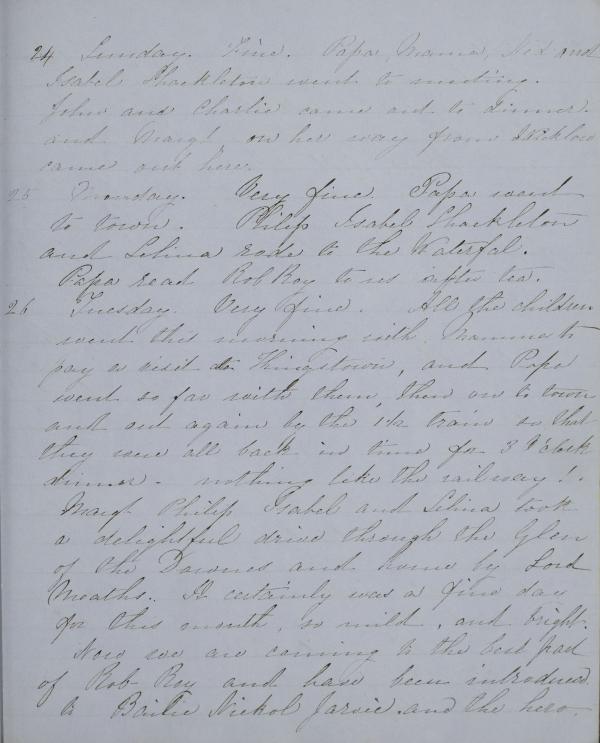 24 Sunday. Fine. Papa, Mama, and
Isabel Shackleton went to meeting.
John and Charlie came out to dinner.
and Margt on her way from Wicklow
came out here.
25 Monday. Very fine. Papa went
to town. Philip Isabel Shackleton
and Selina rode to the Waterfal.
Papa read Rob Roy to us after tea.
26 Tuesday. Very fine. All the children
went this morning with Mamma to
pay a visit to Kingstown, and Papa
went so far with them, then on to town
and out again by the 1½ train so that
they were all back in time for 3 O'clock
dinner - nothing like the railway!.
Margt Philip Isabel and Selina took
a delightful drive through the Glen
of the Downes and home by Lord
Meaths. It certainly was a fine day
for this month, so mild, and bright.
Now we are coming to the best part
of Rob Roy and have been introduced
to Bailie Nickol Jarvie and the hero.